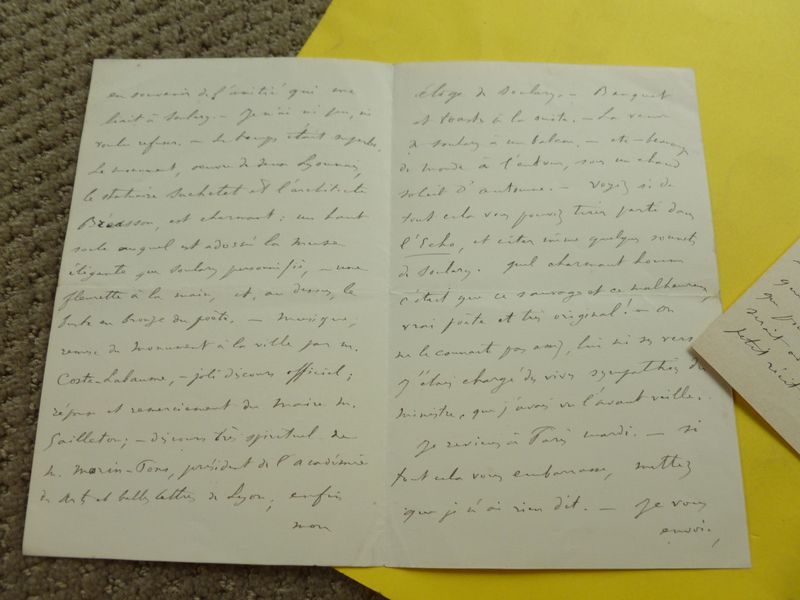 en souvenir de l'amitié qui me
liait à Soulary. — Je n'ai ni pu, ni
voulu refuser. — Le temps était superbe.
Le monument, oeuvre de deux Lyonnais,
le statuaire Suchetet et l'architecte
Bréasson, est charmant : un haut
socle auquel est adossée la muse
élégante que Soulary personnifia, — une
fleurette à la main, et, au dessus, le
buste en bronze du poète. — Musique,
remise du monument à la ville par M.
Coste-Labaume, — joli discours officiel ;
réponse et remerciement du maire M.
Gailleton ; — discours très spirituel de
M. Morin-Pons, président de l'académie
des Arts et belles lettres de Lyon, enfin
mon
éloge de Soulary. — Banquet
et toasts à la suite. — La veuve
de Soulary à un balcon, — etc — beaucoup
de monde à l'entour, sous un chaud
soleil d'automne. — Voyez si de
tout cela vous pouvez tirer parti dans
l'Echo, et citer même quelques sonnets
de Soulary. Quel charmant homme
c'était que ce sauvage et ce malheureux,
vrai poète et très original ! — On
ne le connait pas assez, lui ni ses vers
J'étais chargé des vives sympathies du
ministre, que j'avais vu l'avant veille.
Je reviens à Paris mardi. — Si
tout cela vous embarrasse, mettez
que je n'ai rien dit. — Je vous
envoie,
qu
petit récit